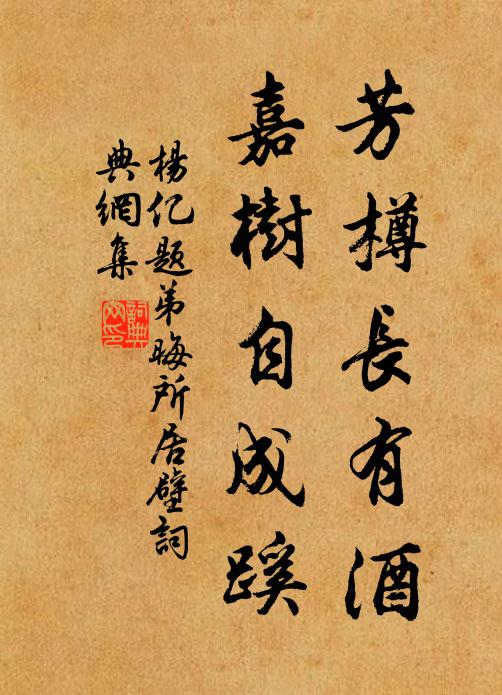 芳樽長有酒
嘉樹自成蹊
楊億題弟晦所居壁詞
典網集
詞典網印